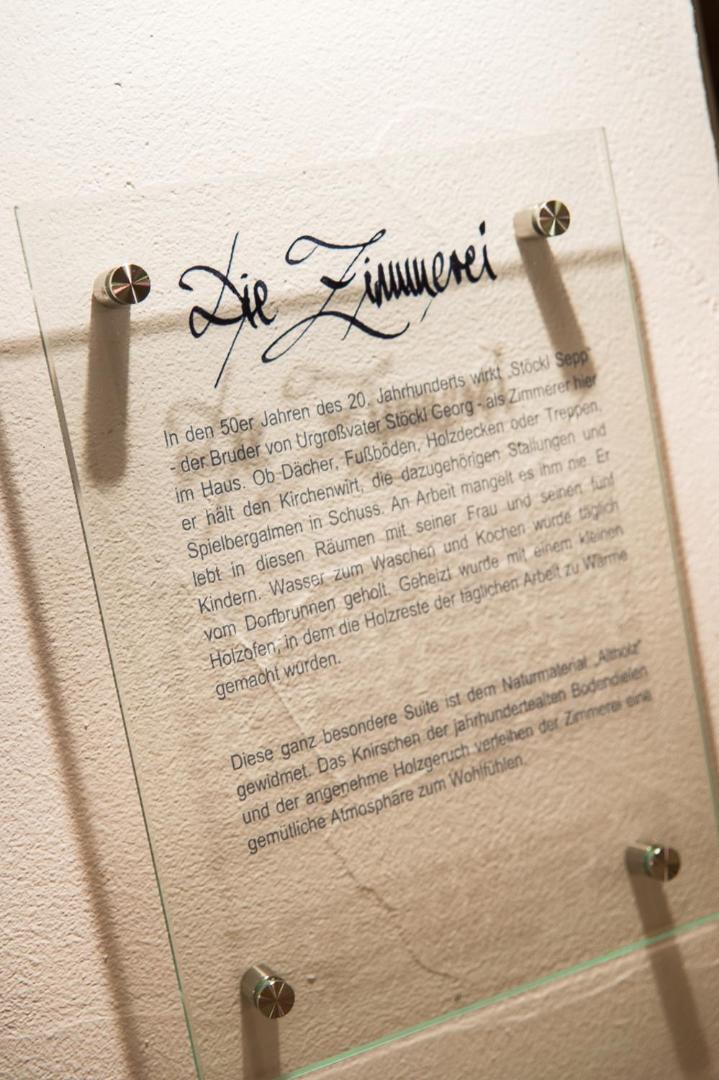 Die Zimmerei
In den 50er Jahren des 20. Jahrhunderts wirkt „Stöckl Sepp“
- der Bruder von Urgroßvater Stöckl Georg - als Zimmerer hier
im Haus. Ob Dächer, Fußböden, Holzdecken oder Treppen,
er hält den Kirchenwirt, die dazugehörigen Stallungen und
Spielbergalmen in Schuss. An Arbeit mangelt es ihm nie. Er
lebt in diesen Räumen mit seiner Frau und seinen fünf
Kindern. Wasser zum Waschen und Kochen wurde täglich
vom Dorfbrunnen geholt. Geheizt wurde mit einem kleinen
Holzofen, in dem die Holzreste der täglichen Arbeit zu Wärme
gemacht wurden.
Diese ganz besondere Suite ist dem Naturmaterial „Altholz“
gewidmet. Das Knirschen der jahrhundertealten Bodendielen
und der angenehme Holzgeruch verleihen der Zimmerei eine
gemütliche Atmosphäre zum Wohlfühlen.